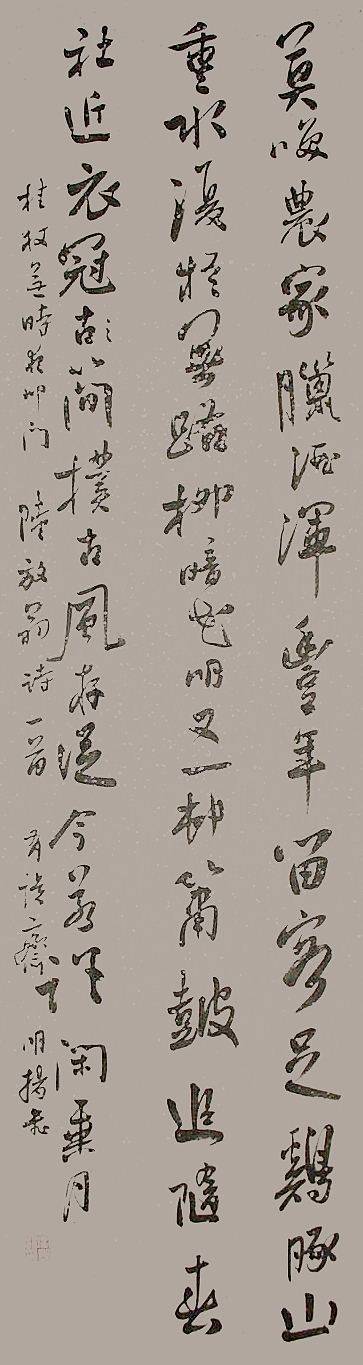 莫咲農家臘酒渾豐年留客足鷄豚山
重水復疑無路柳暗花明又一邨簫鼓追隨春
社近衣冠簡樸古風存從今若許閑乘月
拄杖無時夜叩門 陸放翁詩一首 齋 明揚書